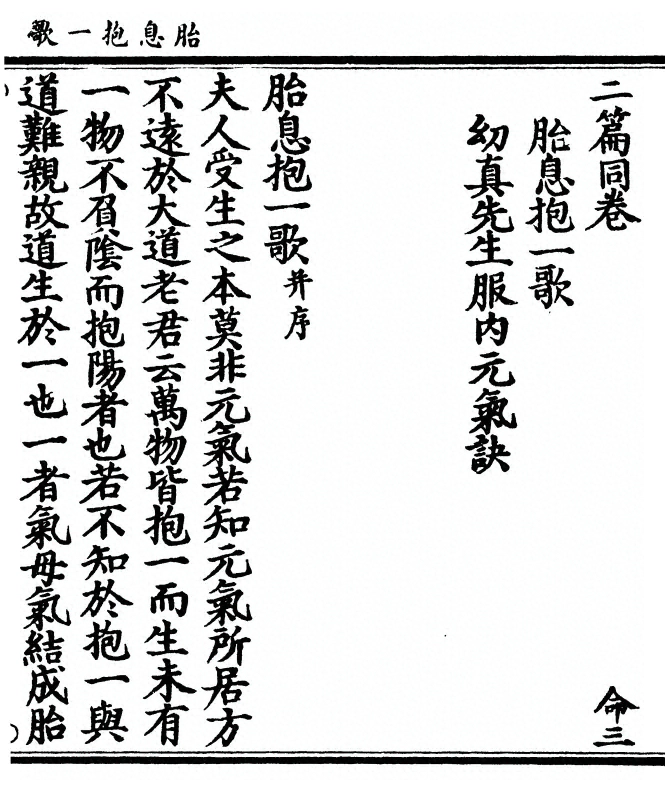 胎息抱一歌
二篇同卷 命三
胎息抱一歌
幻真先生服内元氣訣
胎息抱一歌并序
夫人受生之本莫非元氣若知元氣所居方
不遠於大道老君云萬物皆抱一而生未有
一物不負陰而抱陽者也若不知於抱一與
道難親故道生於一也一者氣母氣結成胎